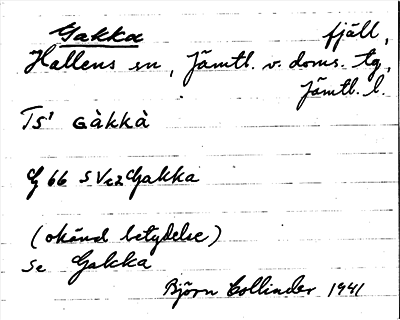 Gakka fjäll,
Hallens sn, Jämtl. v. doms. tg,
Jämtl. l.
TS' Gàkkà
G 66 SVc2 Gakka
(okänd betydelse)
Se Gakka
Björn Collinder 1941